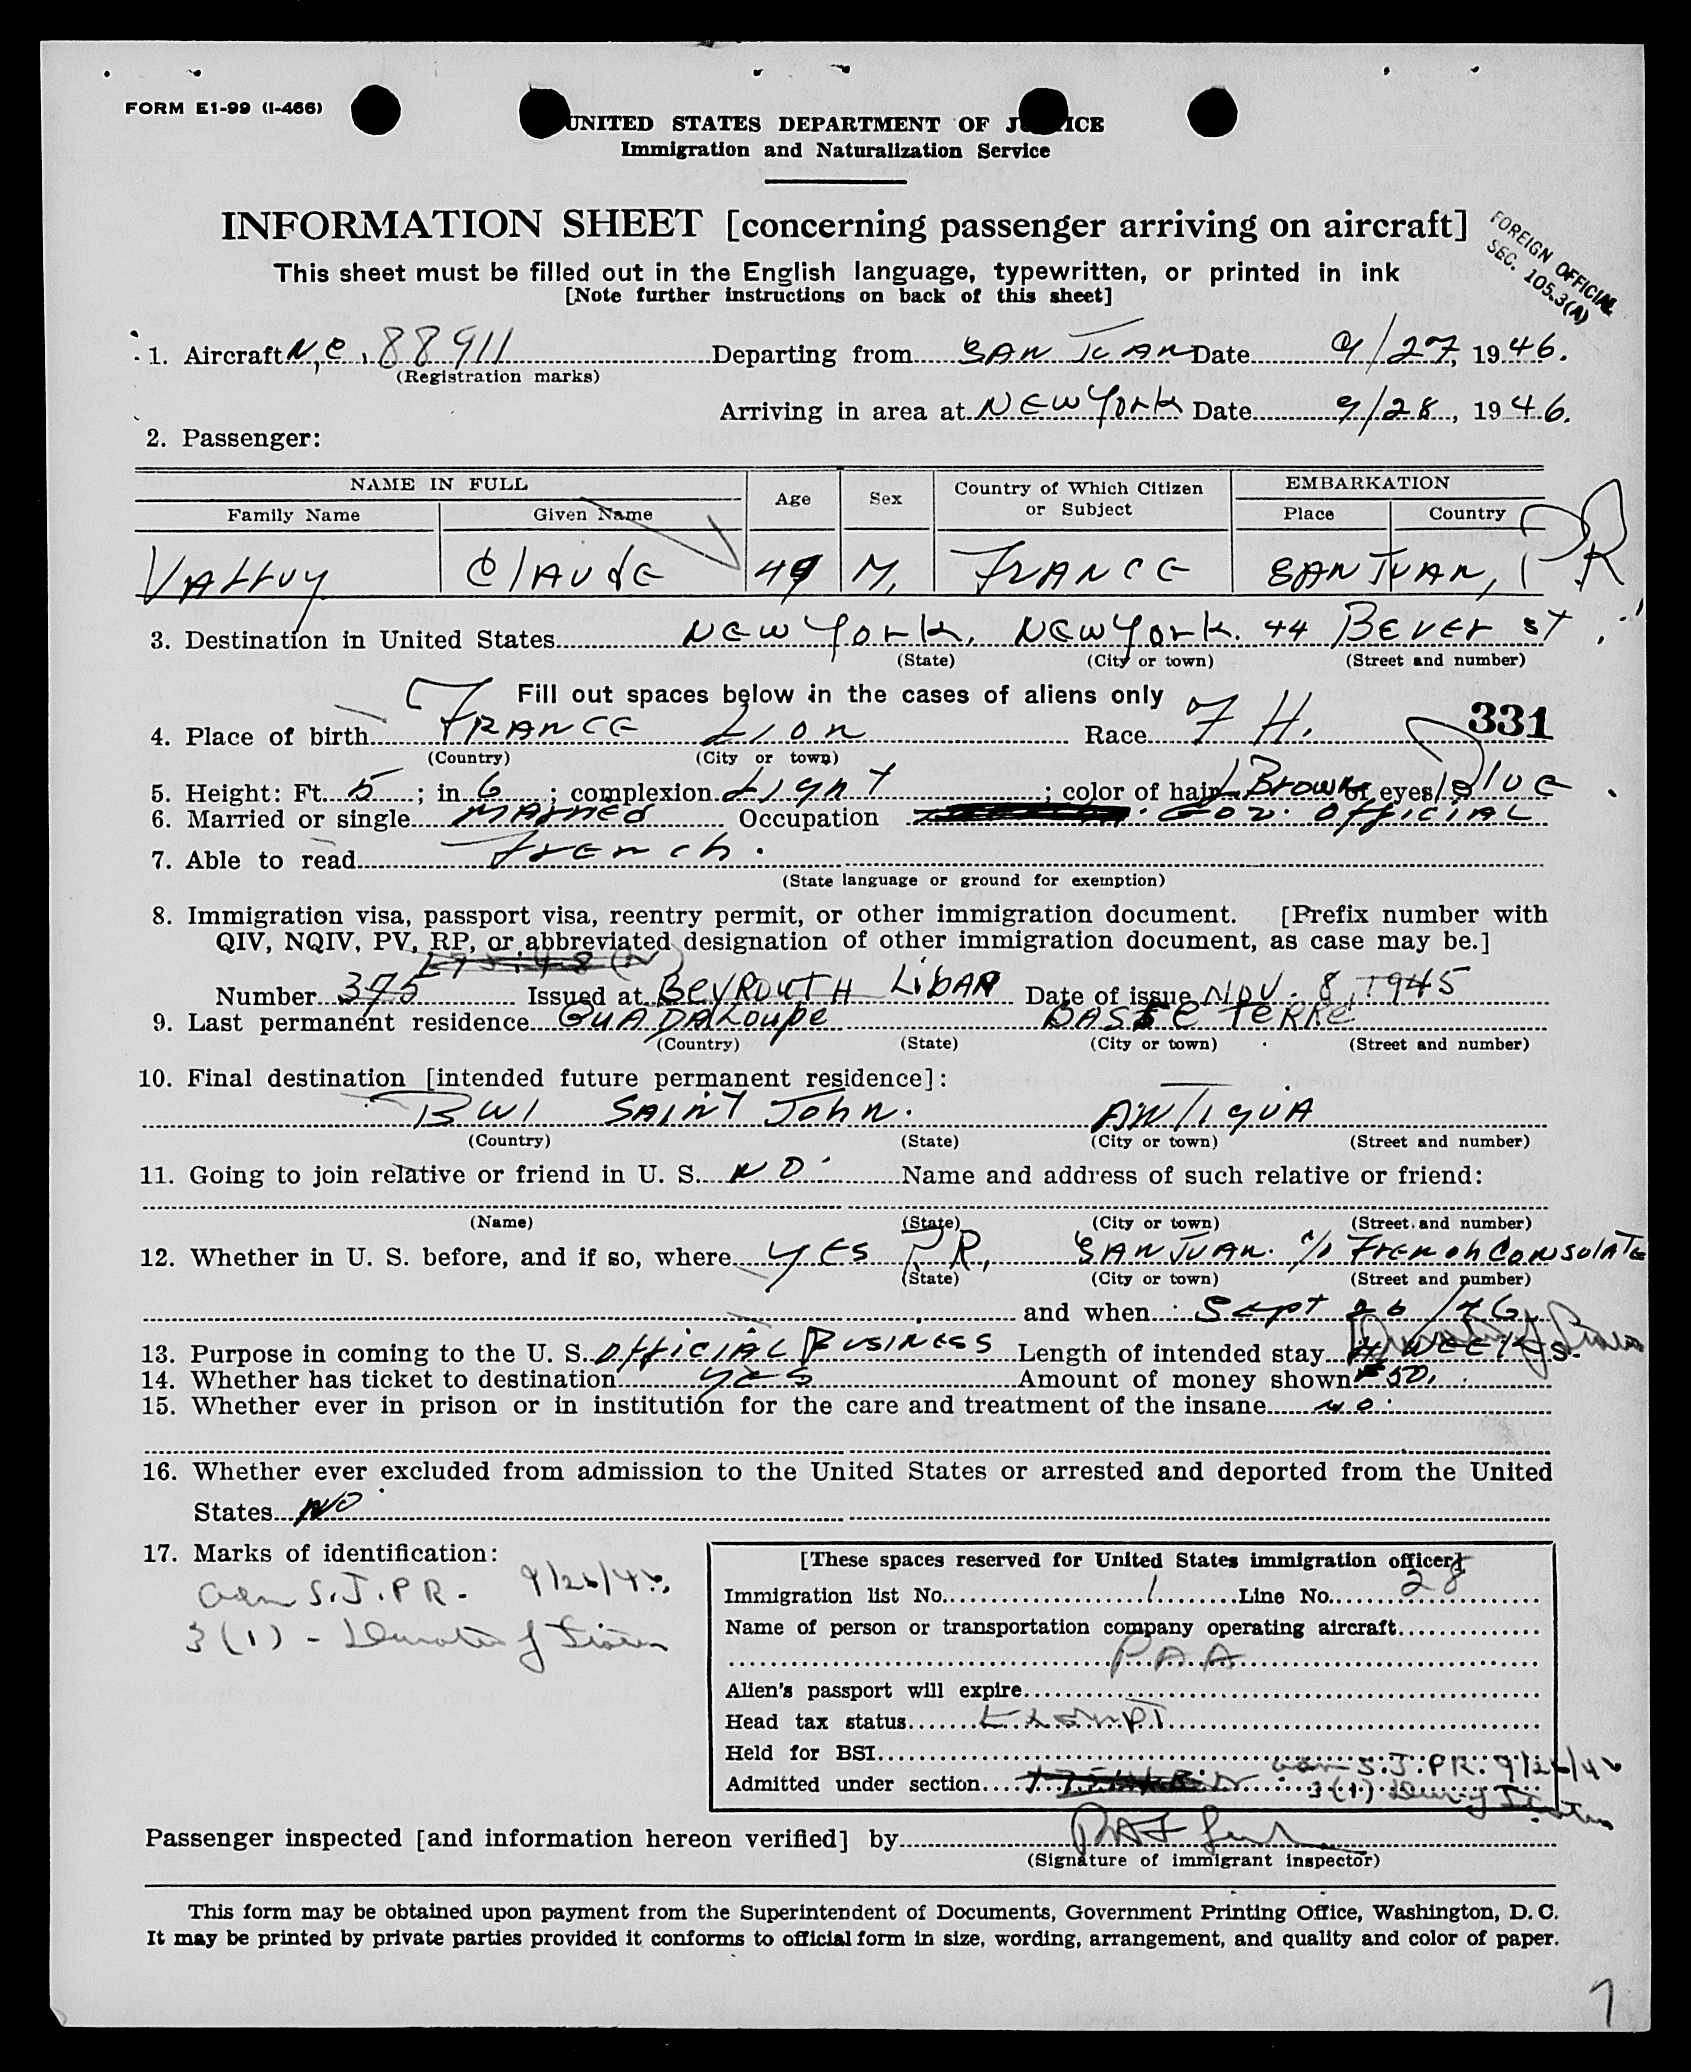 FORM E1-99 (I-466)
UNITED STATES DEPARTMENT OF J ICE
Immigration and Naturalization Service
INFORMATION SHEET [concerning passenger arriving on aircraft]
FOREIGN OFFICIAL
SEC. 105.3(A)
This sheet must be filled out in the English language, typewritten, or printed in ink
[Note further instructions on back of this sheet]
1. Aircraft N.C. 88911 Departing from SAN JUAN Date 9/27, 1946.
(Registration marks)
Arriving in area at NEW York Date 9/28, 1946.
2. Passenger:
NAME IN FULL Age Sex Country of Which Citizen or Subject EMBARKATION
Family Name Given Name Place Country
VALLUY Claude 49 M. FRANCE SAN JUAN, PR
3. Destination in United States NEW York, NEW York. 44 BEVER ST.
(State) (City or town) (Street and number)
Fill out spaces below in the cases of aliens only
4. Place of birth FRANCE Lion Race F H. 331
(Country) (City or town)
5. Height: Ft. 5; in. 6; complexion Light; color of hair L Brown eyes Blue.
6. Married or single MARRIED Occupation GOV. OFFICIAL
7. Able to read French.
(State language or ground for exemption)
8. Immigration visa, passport visa, reentry permit, or other immigration document. [Prefix number with
QIV, NQIV, PV, RP, or abbreviated designation of other immigration document, as case may be.]
Number 375 Issued at BEYROUTH LIBAN Date of issue NOV. 8, 1945
9. Last permanent residence GUADALOUPE BASSE TERRE
(Country) (State) (City or town) (Street and number)
10. Final destination [intended future permanent residence]:
BWI SAINT John. ANTIGUA
(Country) (State) (City or town) (Street and number)
11. Going to join relative or friend in U. S. NO. Name and address of such relative or friend:
(Name) (State) (City or town) (Street and number)
12. Whether in U. S. before, and if so, where YES P R, SAN JUAN. c/o French Consulate
(State) (City or town) (Street and number)
and when Sept 26/46
13. Purpose in coming to the U. S. Official Business Length of intended stay WEEKS. Duration of Status
14. Whether has ticket to destination YES Amount of money shown $50.
15. Whether ever in prison or in institution for the care and treatment of the insane NO.
16. Whether ever excluded from admission to the United States or arrested and deported from the United
States NO
17. Marks of identification:
adm S.J.P.R. 9/26/46
3(1) - Duration of Status
[These spaces reserved for United States immigration officer]
Immigration list No. 1 Line No. 28
Name of person or transportation company operating aircraft
PAA
Alien's passport will expire
Head tax status Exempt
Held for BSI
Admitted under section adm S.J.P.R. 9/26/46
3(1) Dur. of Status
Passenger inspected [and information hereon verified] by
(Signature of immigrant inspector)
This form may be obtained upon payment from the Superintendent of Documents, Government Printing Office, Washington, D. C.
It may be printed by private parties provided it conforms to official form in size, wording, arrangement, and quality and color of paper.
7